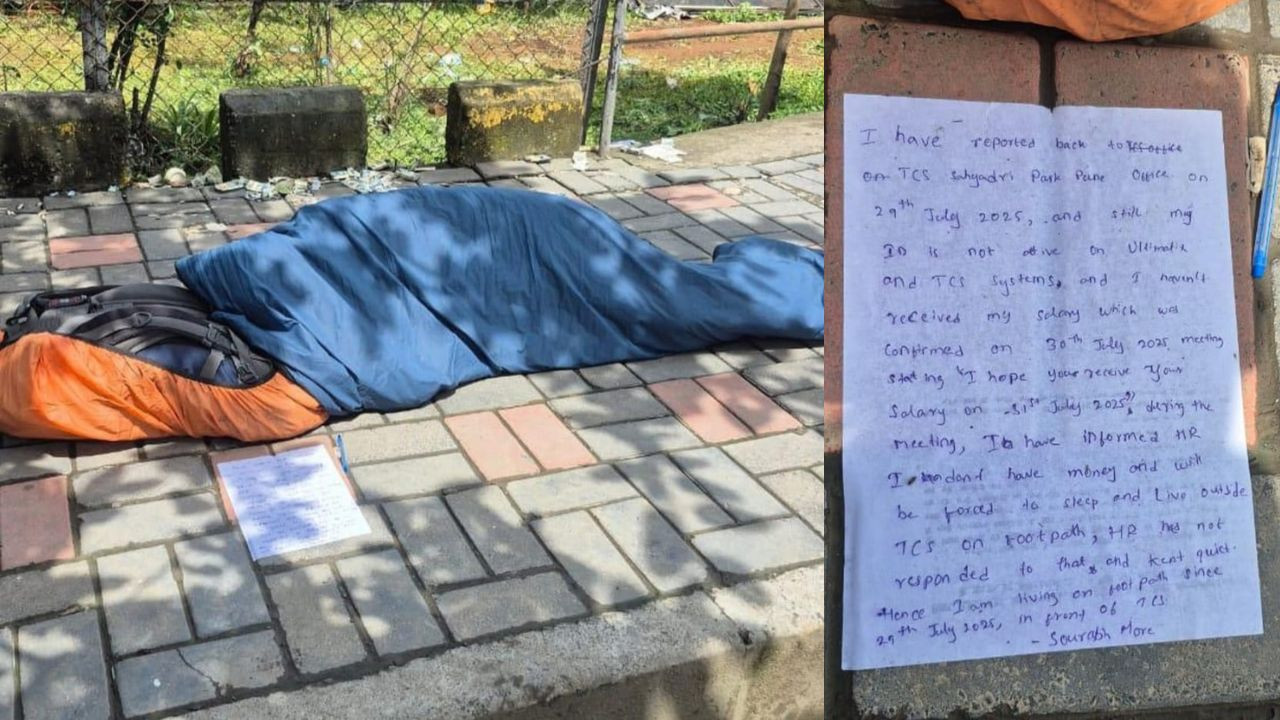 I have reported back to TCS office
on TCS Sahyadri Park Pune Office on
29th July 2025, and still my
ID is not ative on Ultimatix
and TCS systems, and I haven't
received my salary which was
Confirmed on 30th July 2025 meeting
stating "I hope you receive your
Salary on 31st July 2025", dering the
meeting, I have informed HR
I dont have money and will
be forced to sleep and Live outside
TCS on footpath, HR has not
responded to that, and kept quiet.
Hence I am living on footpath since
29th July 2025, in front of TCS
- Sourabh More